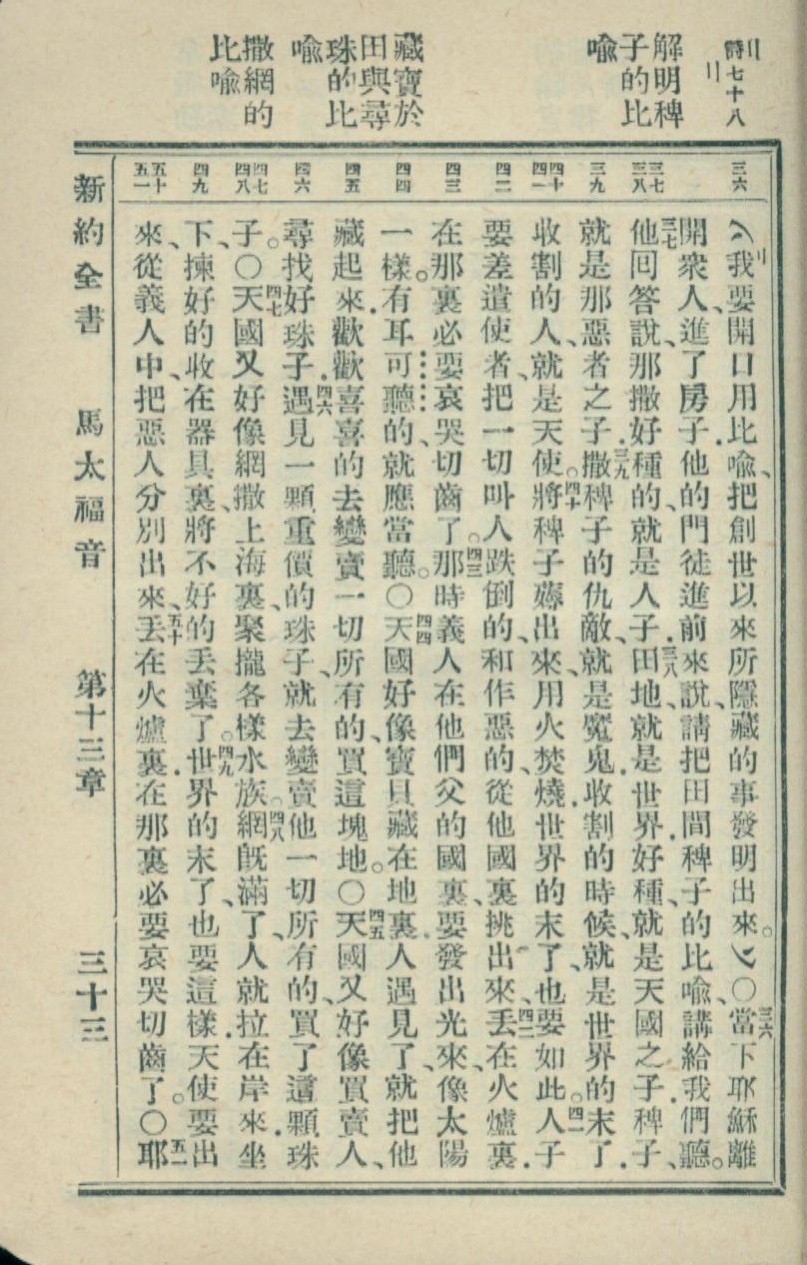 詩七十八
解明稗
子的比
喻
藏寶於
田與尋
珠的比
喻
撒網的
比喻
三六
三七
三八
三九
四十
四一
四二
四三
四四
四五
四六
四七
四八
四九
五十
五一
我要開口用比喻、把創世以來所隱藏的事發明出來。〇三六當下耶穌離
開衆人、進了房子.他的門徒進前來說、請把田間稗子的比喻、講給我們聽。
三七他回答說、那撒好種的、就是人子.三八田地、就是世界.好種、就是天國之子.稗子、
就是那惡者之子.三九撒稗子的仇敵、就是魔鬼.收割的時候、就是世界的末了.
收割的人、就是天使。四十將稗子薅出來、用火焚燒.世界的末了、也要如此。四一人子
要差遣使者、把一切叫人跌倒的、和作惡的、從他國裏挑出來、四二丟在火爐裏.
在那裏必要哀哭切齒了。四三那時義人在他們父的國裏、要發出光來、像太陽
一樣。有耳可聽的、就應當聽。〇四四天國好像寶貝藏在地裏.人遇見了、就把他
藏起來.歡歡喜喜的去變賣一切所有的、買這塊地。〇四五天國又好像買賣人、
尋找好珠子.四六遇見一顆重價的珠子、就去變賣他一切所有的、買了這顆珠
子。〇四七天國又好像網撒上海裏、聚攏各樣水族。四八網旣滿了、人就拉在岸來.坐
下、揀好的收在器具裏、將不好的丟棄了。四九世界的末了、也要這樣.天使要出
來、從義人中、把惡人分別出來、五十丟在火爐裏.在那裏必要哀哭切齒了。〇五一耶
新約全書　馬太福音　第十三章　三十三